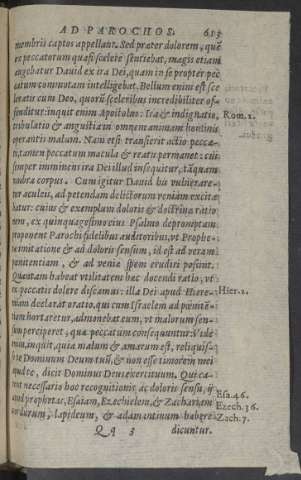 AD PAROCHOS. 613
membris captos appellat. Sed præter dolorem, quē
ex peccatorum quasi scelere sentiebat, magis etiam
angebatur Dauid ex ira Dei, quam in se propter pec
catum commotam intelligebat. Bellum enim est sce
leratis cum Deo, quorū sceleribus incredibiliter of-
fenditur: inquit enim Apostolus: Ira & indignatio, Rom. 2.
tribulatio & angustia in omnem animam hominis
operantis malum. Nam etsi transierit actio pecca-
ti, tamen peccatum macula & reatu permanet: cui
semper imminens ira Dei illud insequitur, tāquam
vmbra corpus. Cum igitur Dauid his vulnerare-
tur aculeis, ad petendam delictorum veniam excita
batur: cuius & exemplum doloris & doctrinæ ratio
nem, ex quinquagesimo eius Psalmo depromptam
proponent Parochi fidelibus auditoribus, vt Prophe-
tæ imitatione & ad doloris sensum, id est ad veram
pœnitentiam, & ad veniæ spem erudiri possint.
Quantam habeat vtilitatem hæc docendi ratio, vt
ex peccatis dolere discamus: illa Dei apud Hiere- Hier. 2.
miam declarat oratio, qui cum Israelem ad pœnitē-
tiam hortaretur, admonebat eum, vt malorum sen-
sum perciperet, quæ peccatum consequuntur: Vide
inquit, quia malum & amarum est, reliquis-
se Dominum Deum tuū, & non esse timorem mei
apud te, dicit Dominus Deus exercituum. Qui ca-
rent necessaria hac recognitionis ac doloris sensu, ij
apud prophetas, Esaiam, Ezechielem, & Zachariam Esa. 46.
cor durum, lapideum, & adamantinum habere Ezech. 36.
Zach. 7.
Qq 3 dicuntur.